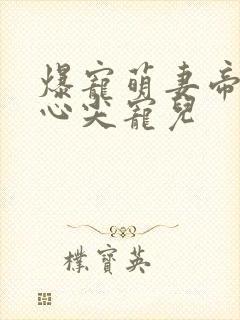 爆寵萌妻帝
心尖寵兒
樸寶英